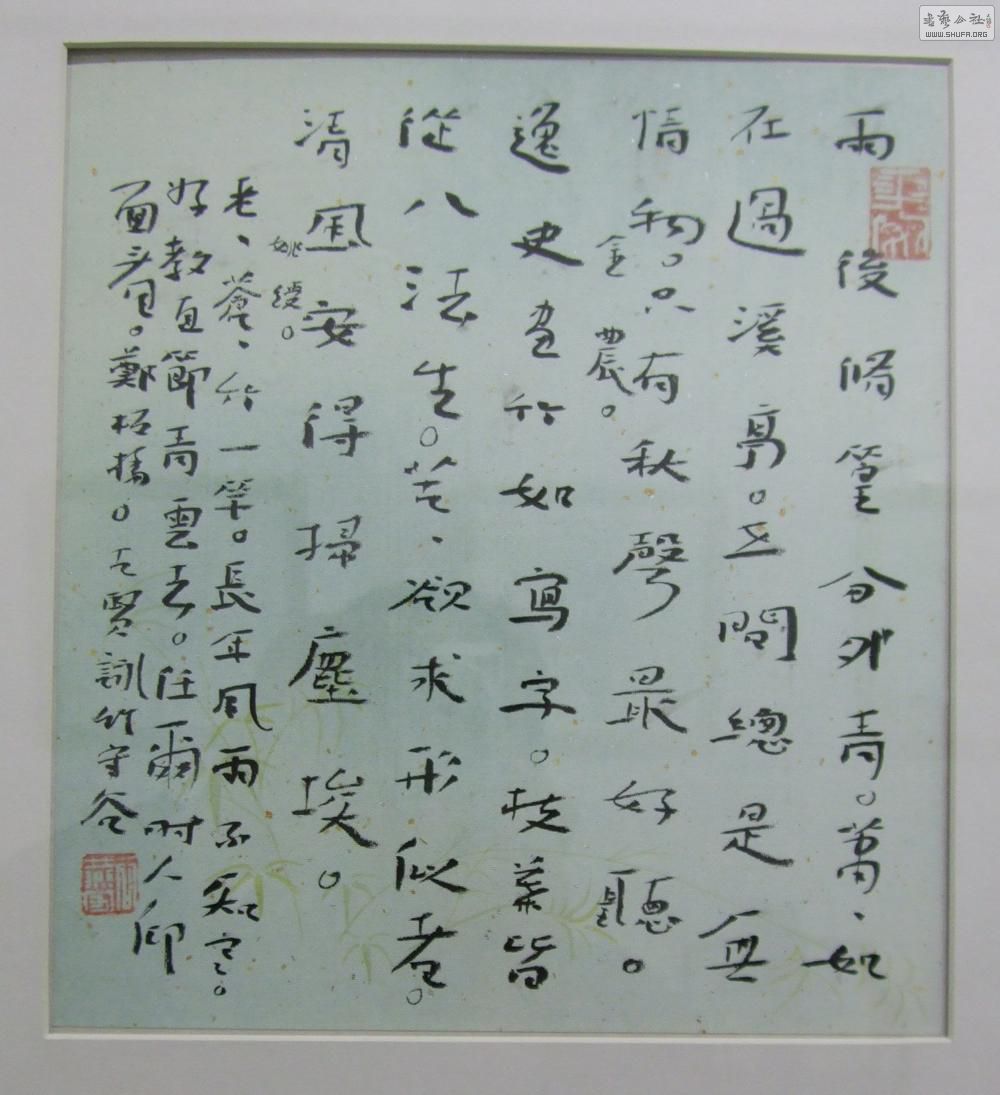 書藝公社
WWW.SHUFA.ORG
雨後脩篁分外青。蕭、如
在過溪亭。世間總是無
情物。只有秋聲最好聽。
金農。
逸史畫竹如寫字。枝葉皆
從八法生。苦、欲求形似者。
清風安得掃塵埃。
姚綬。
老、蒼、竹一竿。長年風雨不知寒。
好教直節青雲去。任爾時人仰
面看。鄭板橋。古賢詠竹守谷